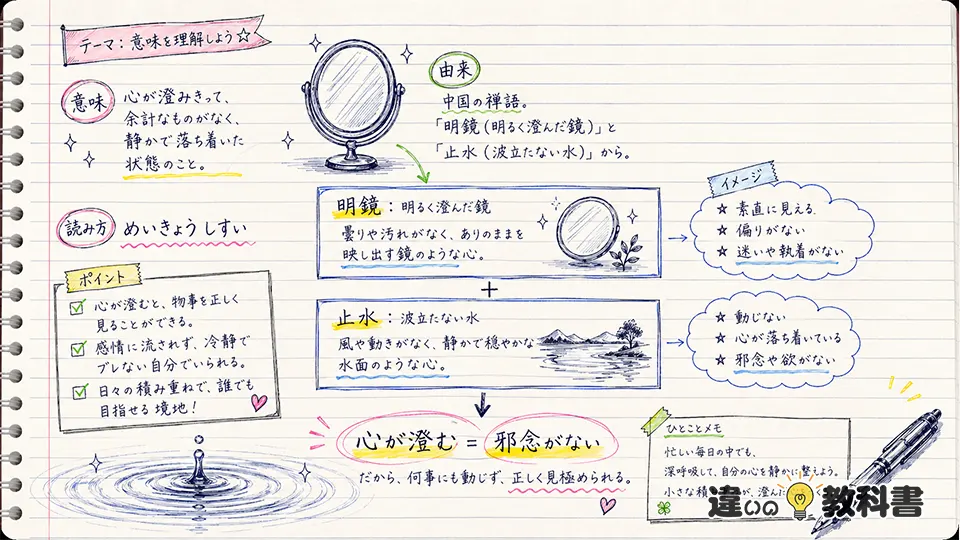 テーマ：意味を理解しよう☆
意味
心が澄みきって、
余計なものがなく、
静かで落ち着いた
状態のこと。
読み方
めいきょうしすい
ポイント
心が澄むと、物事を正しく
見ることができる。
感情に流されず、冷静で
ブレない自分でいられる。
日々の積み重ねで、誰でも
目指せる境地！
由来
中国の禅語。
「明鏡（明るく澄んだ鏡）」と
「止水（波立たない水）」から。
明鏡：明るく澄んだ鏡
曇りや汚れがなく、ありのままを
映し出す鏡のような心。
イメージ
☆ 素直に見える
☆ 偏りがない
☆ 迷いや執着がない
+
止水：波立たない水
風や動きがなく、静かで穏やかな
水面のような心。
☆ 動じない
☆ 心が落ち着いている
☆ 邪念や欲がない
心が澄む = 邪念がない
だから、何事にも動じず、正しく見極められる。
ひとことメモ
忙しい毎日の中でも、
深呼吸して、自分の心を静かに整えよう。
小さな積 が、澄んだ
違いの教科書